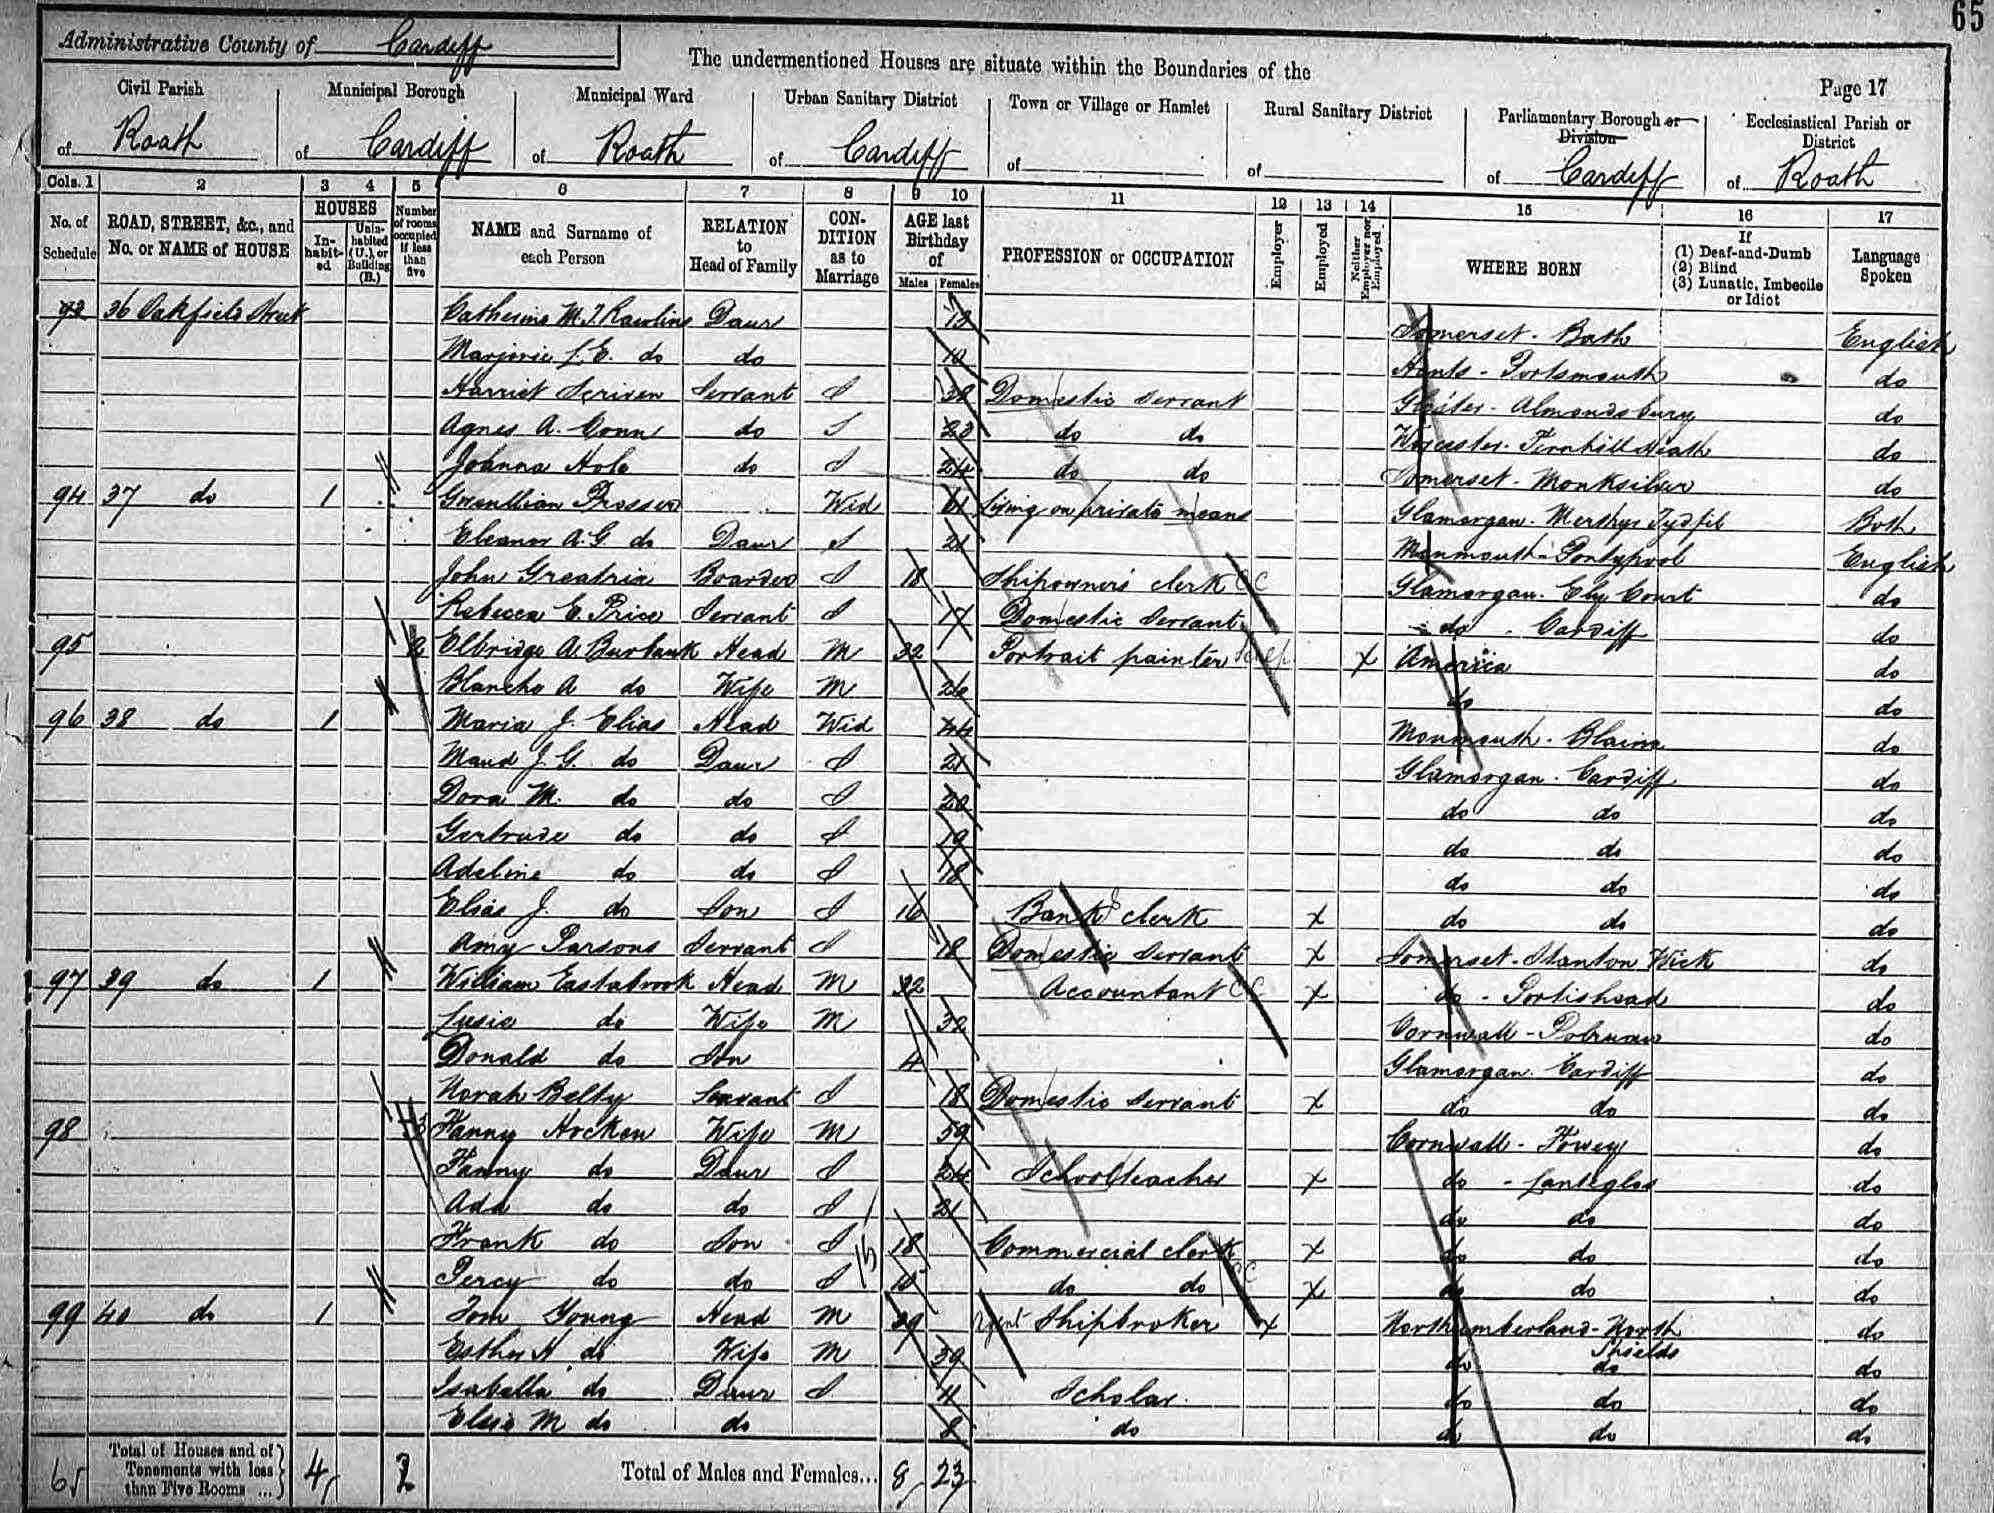 65
Administrative County of Cardiff
The undermentioned Houses are situate within the Boundaries of the
Page 17
Civil Parish of Roath
Municipal Borough of Cardiff
Municipal Ward of Roath
Urban Sanitary District of Cardiff
Town or Village or Hamlet of
Rural Sanitary District of
Parliamentary Borough or Division of Cardiff
Ecclesiastical Parish or District of Roath
Cols. 1 2 3 4 5 6 7 8 9 10 11 12 13 14 15 16 17
No. of Schedule
ROAD, STREET, &c., and No. or NAME of HOUSE
HOUSES
Inhabited
Uninhabited (U.), or Building (B.)
Number of rooms occupied if less than five
NAME and Surname of each Person
RELATION to Head of Family
CONDITION as to Marriage
AGE last Birthday of
Males Females
PROFESSION or OCCUPATION
Employer
Employed
Neither Employer nor Employed
WHERE BORN
If (1) Deaf-and-Dumb (2) Blind (3) Lunatic, Imbecile or Idiot
Language Spoken
36 Oakfield Street Catherine M. J. Rawlins Daur Somerset - Bath English
Marjorie L. E. do do 10 Hants - Portsmouth do
Harriet Scriven Servant S Domestic Servant Almondsbury do
Agnes A. do S do do Worcester - Fernhill Heath do
Johanna Hole do S 24 do do Somerset - Monksilver do
94 37 do 1 Gwenllian Prosser Wid 61 Living on private means Glamorgan - Merthyr Tydfil Both
Eleanor A. G. do Daur S 21 Monmouth - Pontypool English
John Greatrix Boarder S 18 Shipowners clerk CC Glamorgan - Ely Court do
Rebecca E. Price Servant S Domestic Servant do - Cardiff do
95 2 Elbridge A. Burbank Head M 32 Portrait painter X America do
Blanche A do Wife M do do
96 38 do 1 Maria J. Elias Head Wid 44 Monmouth - Blaina do
Maud J. G. do Daur S 21 Glamorgan - Cardiff do
Dora M. do do S 20 do do do
Gertrude do do S 19 do do do
Adeline do do S 18 do do do
Elias J. do Son S 16 Bank clerk X do do do
Amy Parsons Servant S 18 Domestic Servant X Somerset - Stanton Wick do
97 39 do 1 William Eastabrook Head M 32 Accountant X do - Portishead do
Lusie do Wife M 32 Cornwall - Polruan do
Donald do Son 4 Glamorgan - Cardiff do
Norah Servant S 18 Domestic Servant X do do do
98 3 Fanny Hocken Wife M 59 Cornwall - Fowey do
Fanny do Daur S 24 School teacher X do - Lanteglos do
Ada do do S 21 do do do
Frank do Son S 18 Commercial clerk X do do do
Percy do do S 15 do do X do do do
99 40 do 1 Tom Young Head M 39 Shipbroker X Northumberland - North Shields do
Esther H do Wife M 39 do do do
Isabella do Daur S 11 Scholar do do do
Elsie M do do 8 do do do do
65 Total of Houses and of Tenements with less than Five Rooms ... 4 2 Total of Males and Females... 8 23